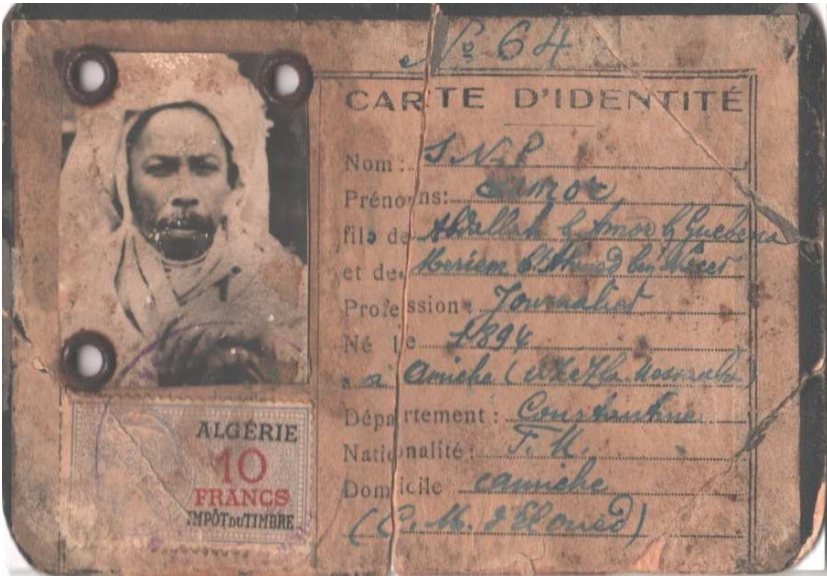 Nº 64
CARTE D'IDENTITÉ
Nom: S.N.P
Prénoms: Amor
fils de Abdallah b. Amor b. Guebena
et de Meriem b. Ahmed ben
Profession: Journalier
Né le 1894
à Amiche
Département: Constantine
Nationalité: F. M.
Domicile Amiche
(C. M. d'El Oued)
ALGÉRIE
10
FRANCS
IMPÔT DU TIMBRE